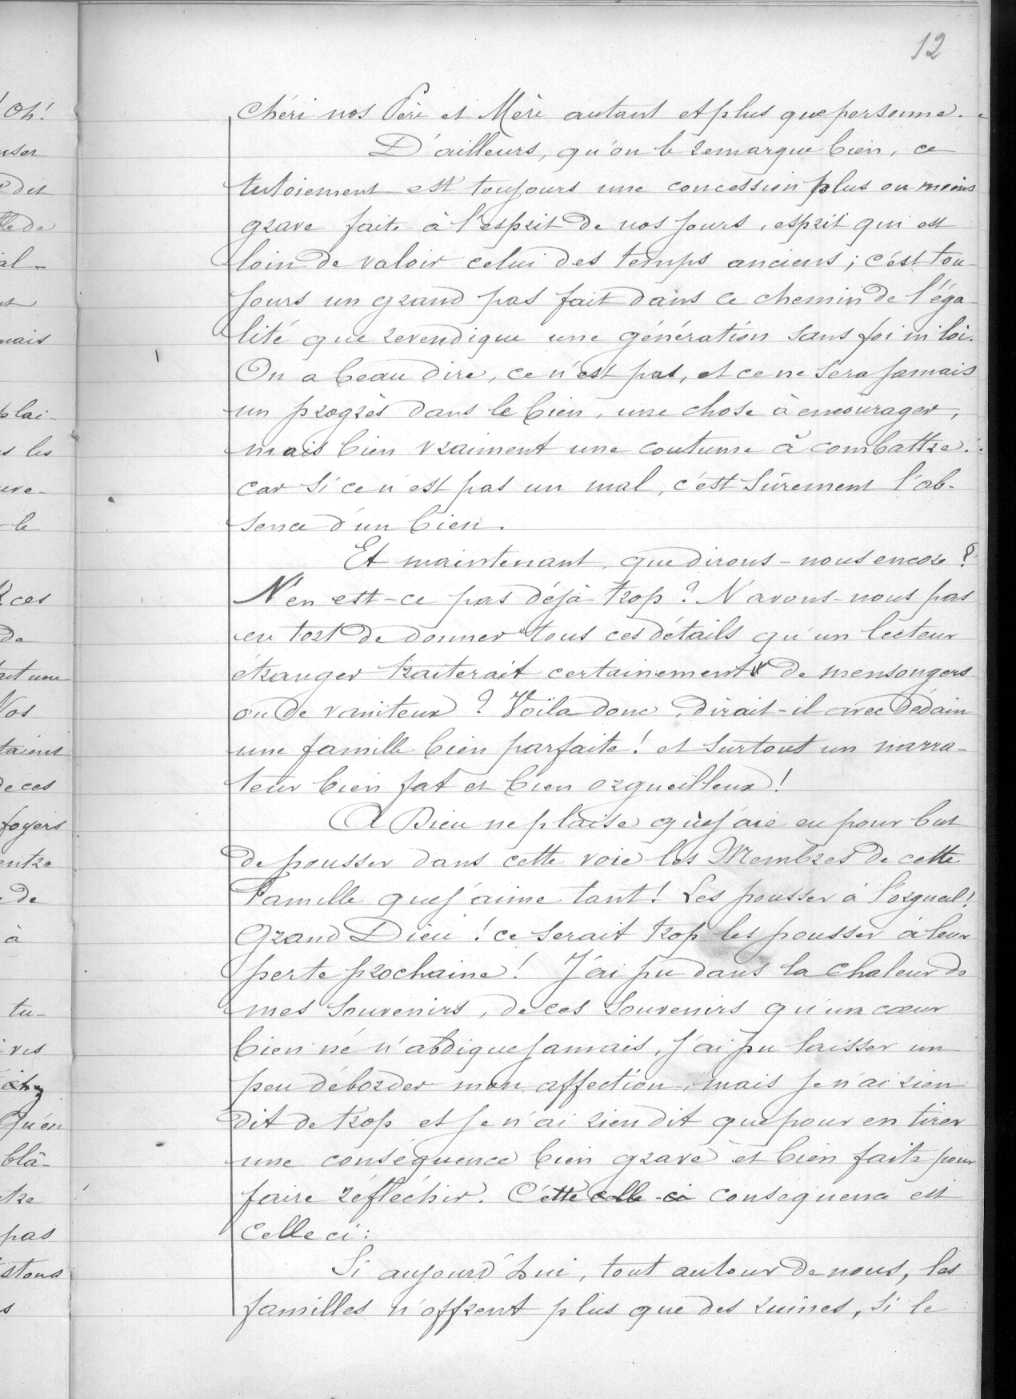 12
chéri nos Père et Mère autant et plus que personne.
D'ailleurs, qu'on le remarque bien, ce
tutoiement est toujours une concession plus ou moins
grave faite à l'esprit de nos jours, esprit qui est
loin de valoir celui des temps anciens ; c'est tou
jours un grand pas fait dans ce chemin de l'éga
lité que revendique une génération sans foi ni loi.
On a beau dire, ce n'est pas, et ce ne sera jamais
un progrès dans le bien, une chose à encourager,
mais bien vraiment une coutume à combattre :
car si ce n'est pas un mal, c'est sûrement l'ab-
sence d'un bien.
Et maintenant, que dirons-nous encore ?
N'en est-ce pas déjà trop ? N'avons-nous pas
eu tort de donner tous ces détails qu'un lecteur
étranger traiterait certainement de mensongers
ou de vaniteux ? Voilà donc, dirait-il avec dédain
une famille bien parfaite ! et surtout un narra-
teur bien fat et bien orgueilleux !
A Dieu ne plaise que j'aie eu pour but
de pousser dans cette voie les Membres de cette
Famille que j'aime tant ! Les pousser à l'orgueil !
Grand Dieu ! ce serait trop les pousser à leur
perte prochaine ! J'ai pu dans la chaleur de
mes souvenirs, de ces souvenirs qu'un cœur
bien né n'abdique jamais, j'ai pu laisser un
peu déborder mon affection, mais je n'ai rien
dit de trop et je n'ai rien dit que pour en tirer
une conséquence bien grave et bien faite pour
faire réfléchir. Cette celle-ci consequence est
celle ci :
Si aujourd'hui, tout autour de nous, les
familles n'offrent plus que des ruines, si le